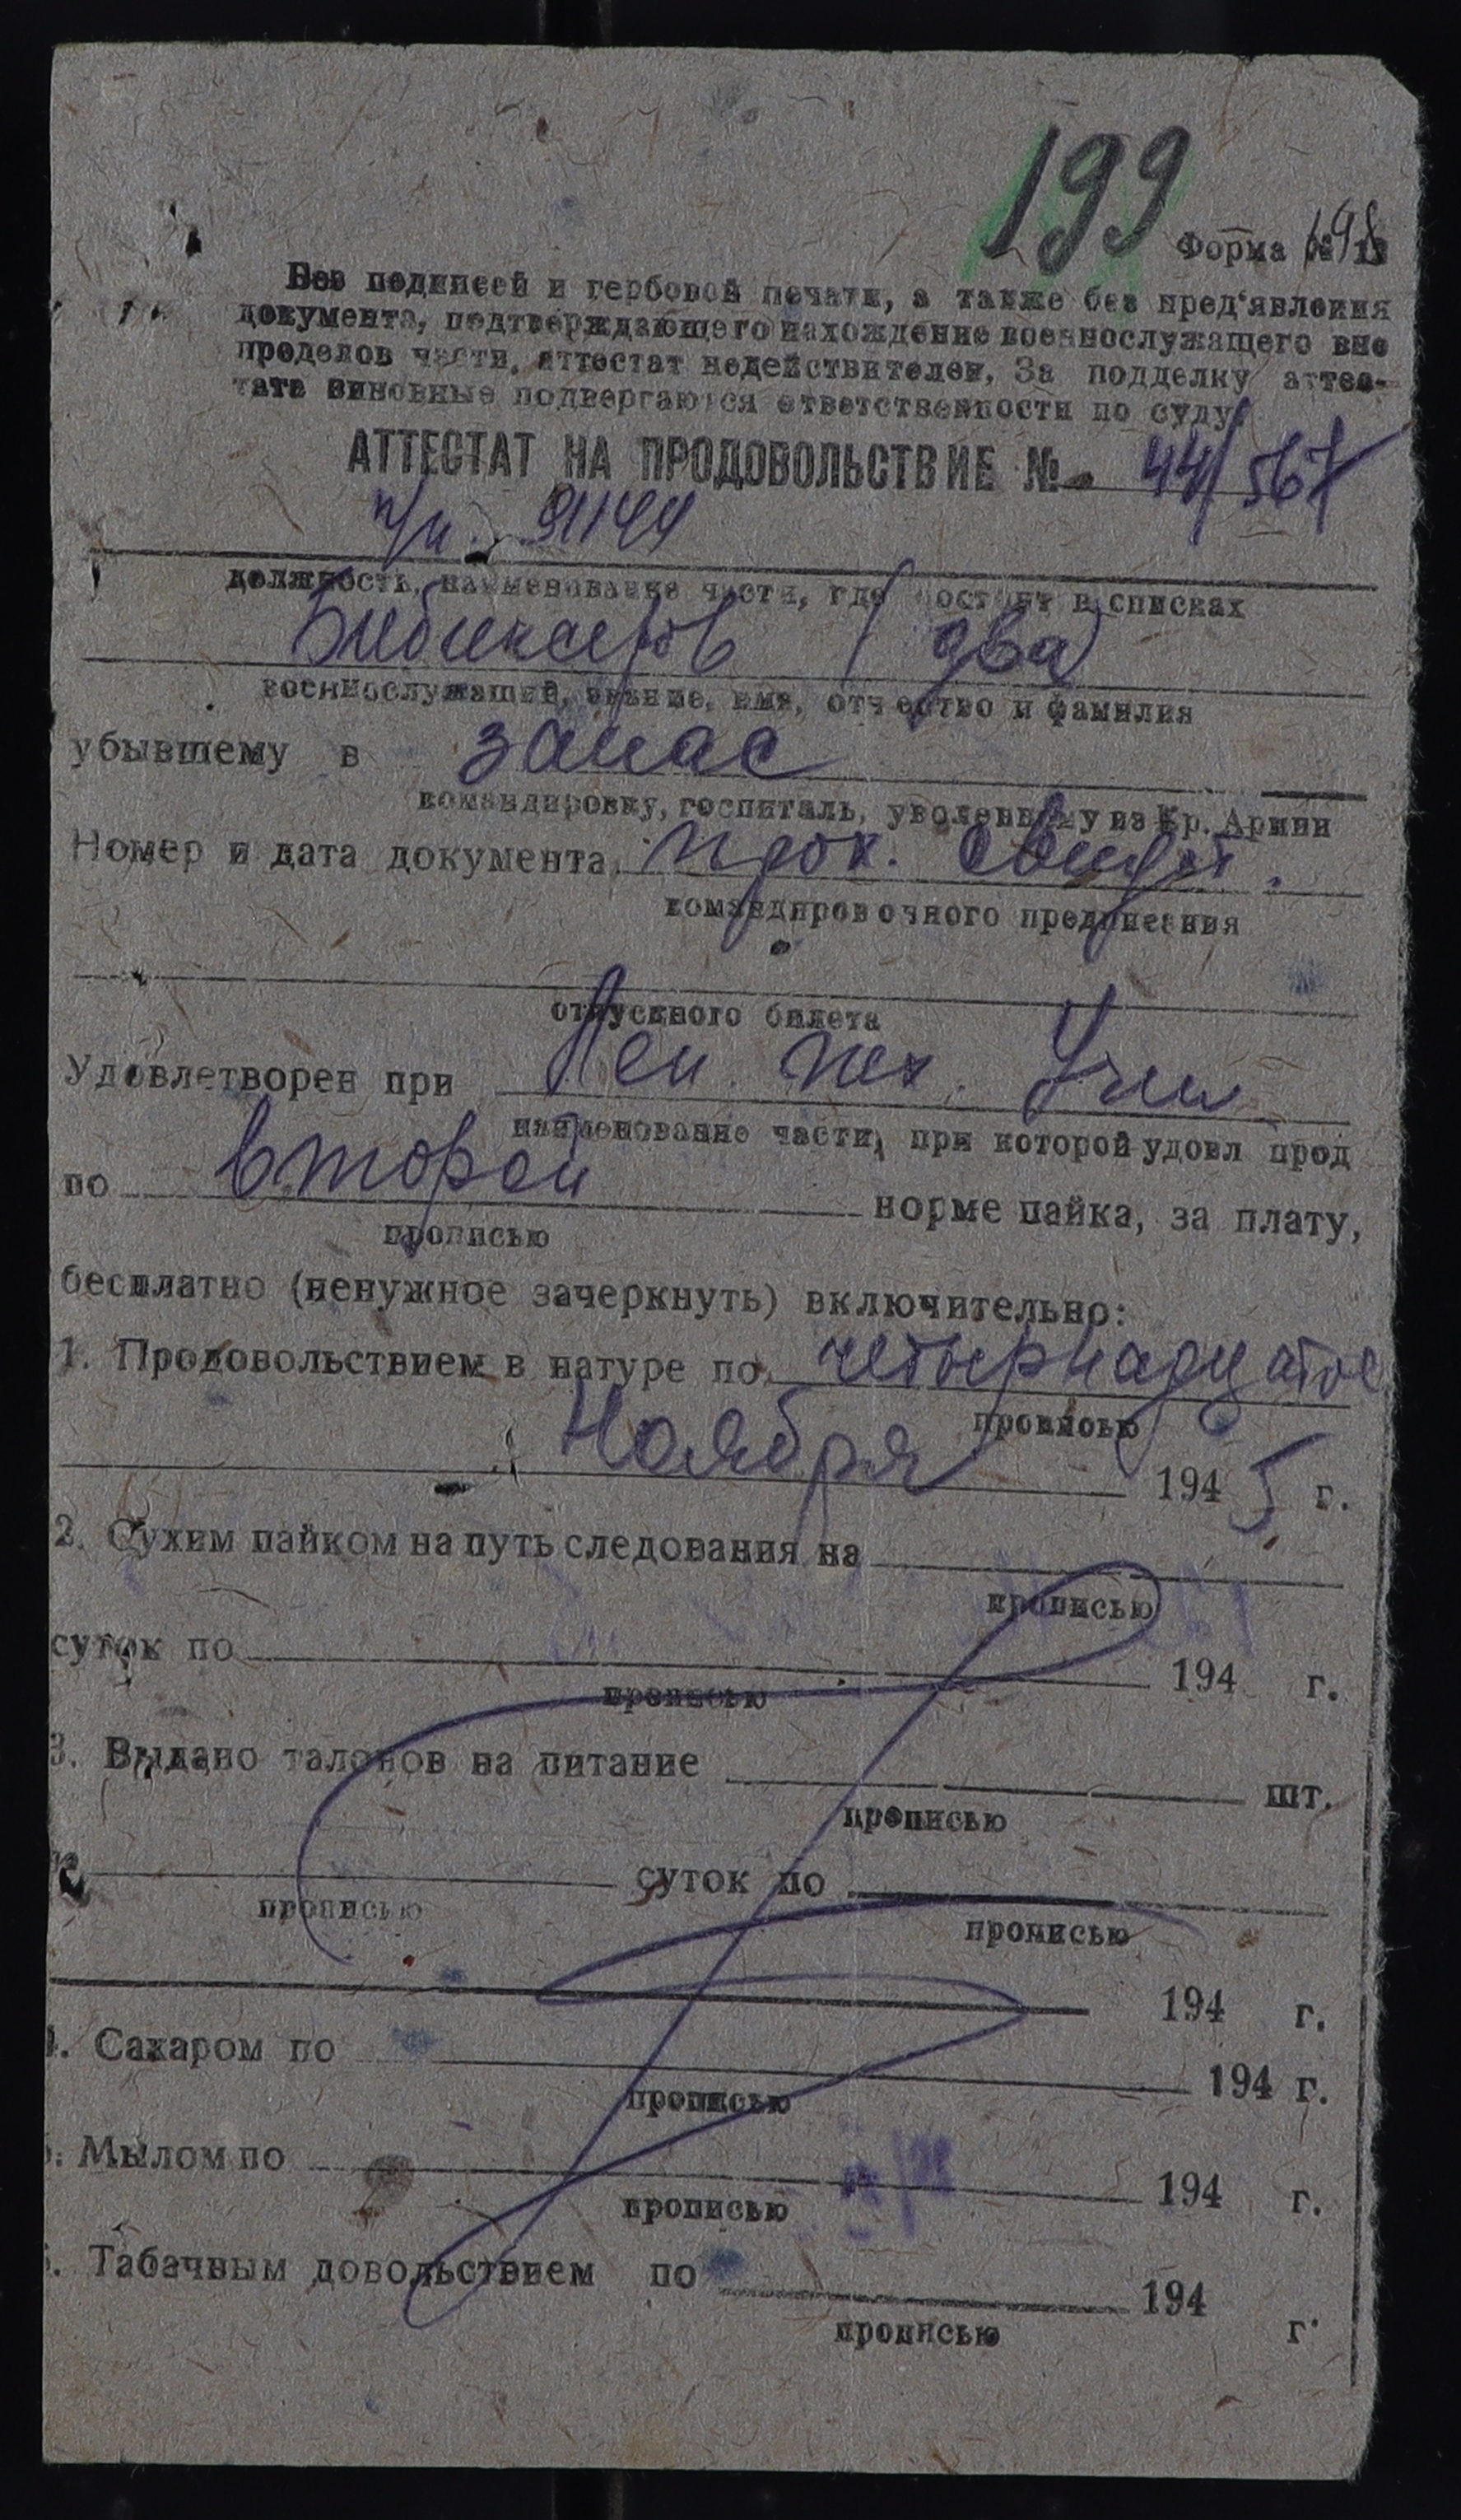 199
Форма № 13
198
Без подписей и гербовой печати, а также без пред'явления
документа, подтверждающего нахождение военнослужащего вне
пределов части, аттестат недействителен, За подделку аттес-
тата виновные подвергаются ответственности по суду.
АТТЕСТАТ НА ПРОДОВОЛЬСТВИЕ № 44/567
п/п. 91144
должность, наименование части, где состоит в списках
два
военнослужащий, звание, имя, отчество и фамилия
убывшему в запас
командировку, госпиталь, уволенному из Кр. Армии
Номер и дата документа прох. свидет.
командировочного предписания
отпускного билета
Удовлетворен при Лен. пех. Учил
наименование части, при которой удовл прод
по второй норме пайка, за плату,
прописью
бесплатно (ненужное зачеркнуть) включительно:
1. Продовольствием в натуре по четырнадцатое
прописью
Ноября 1945 г.
2. Сухим пайком на путь следования на
прописью
суток по 194 г.
прописью
3. Выдано талонов на питание шт.
прописью
суток по
прописью прописью
194 г.
4. Сахаром по 194 г.
прописью
Мылом по 194 г.
прописью
Табачным довольствием по 194 г.
прописью